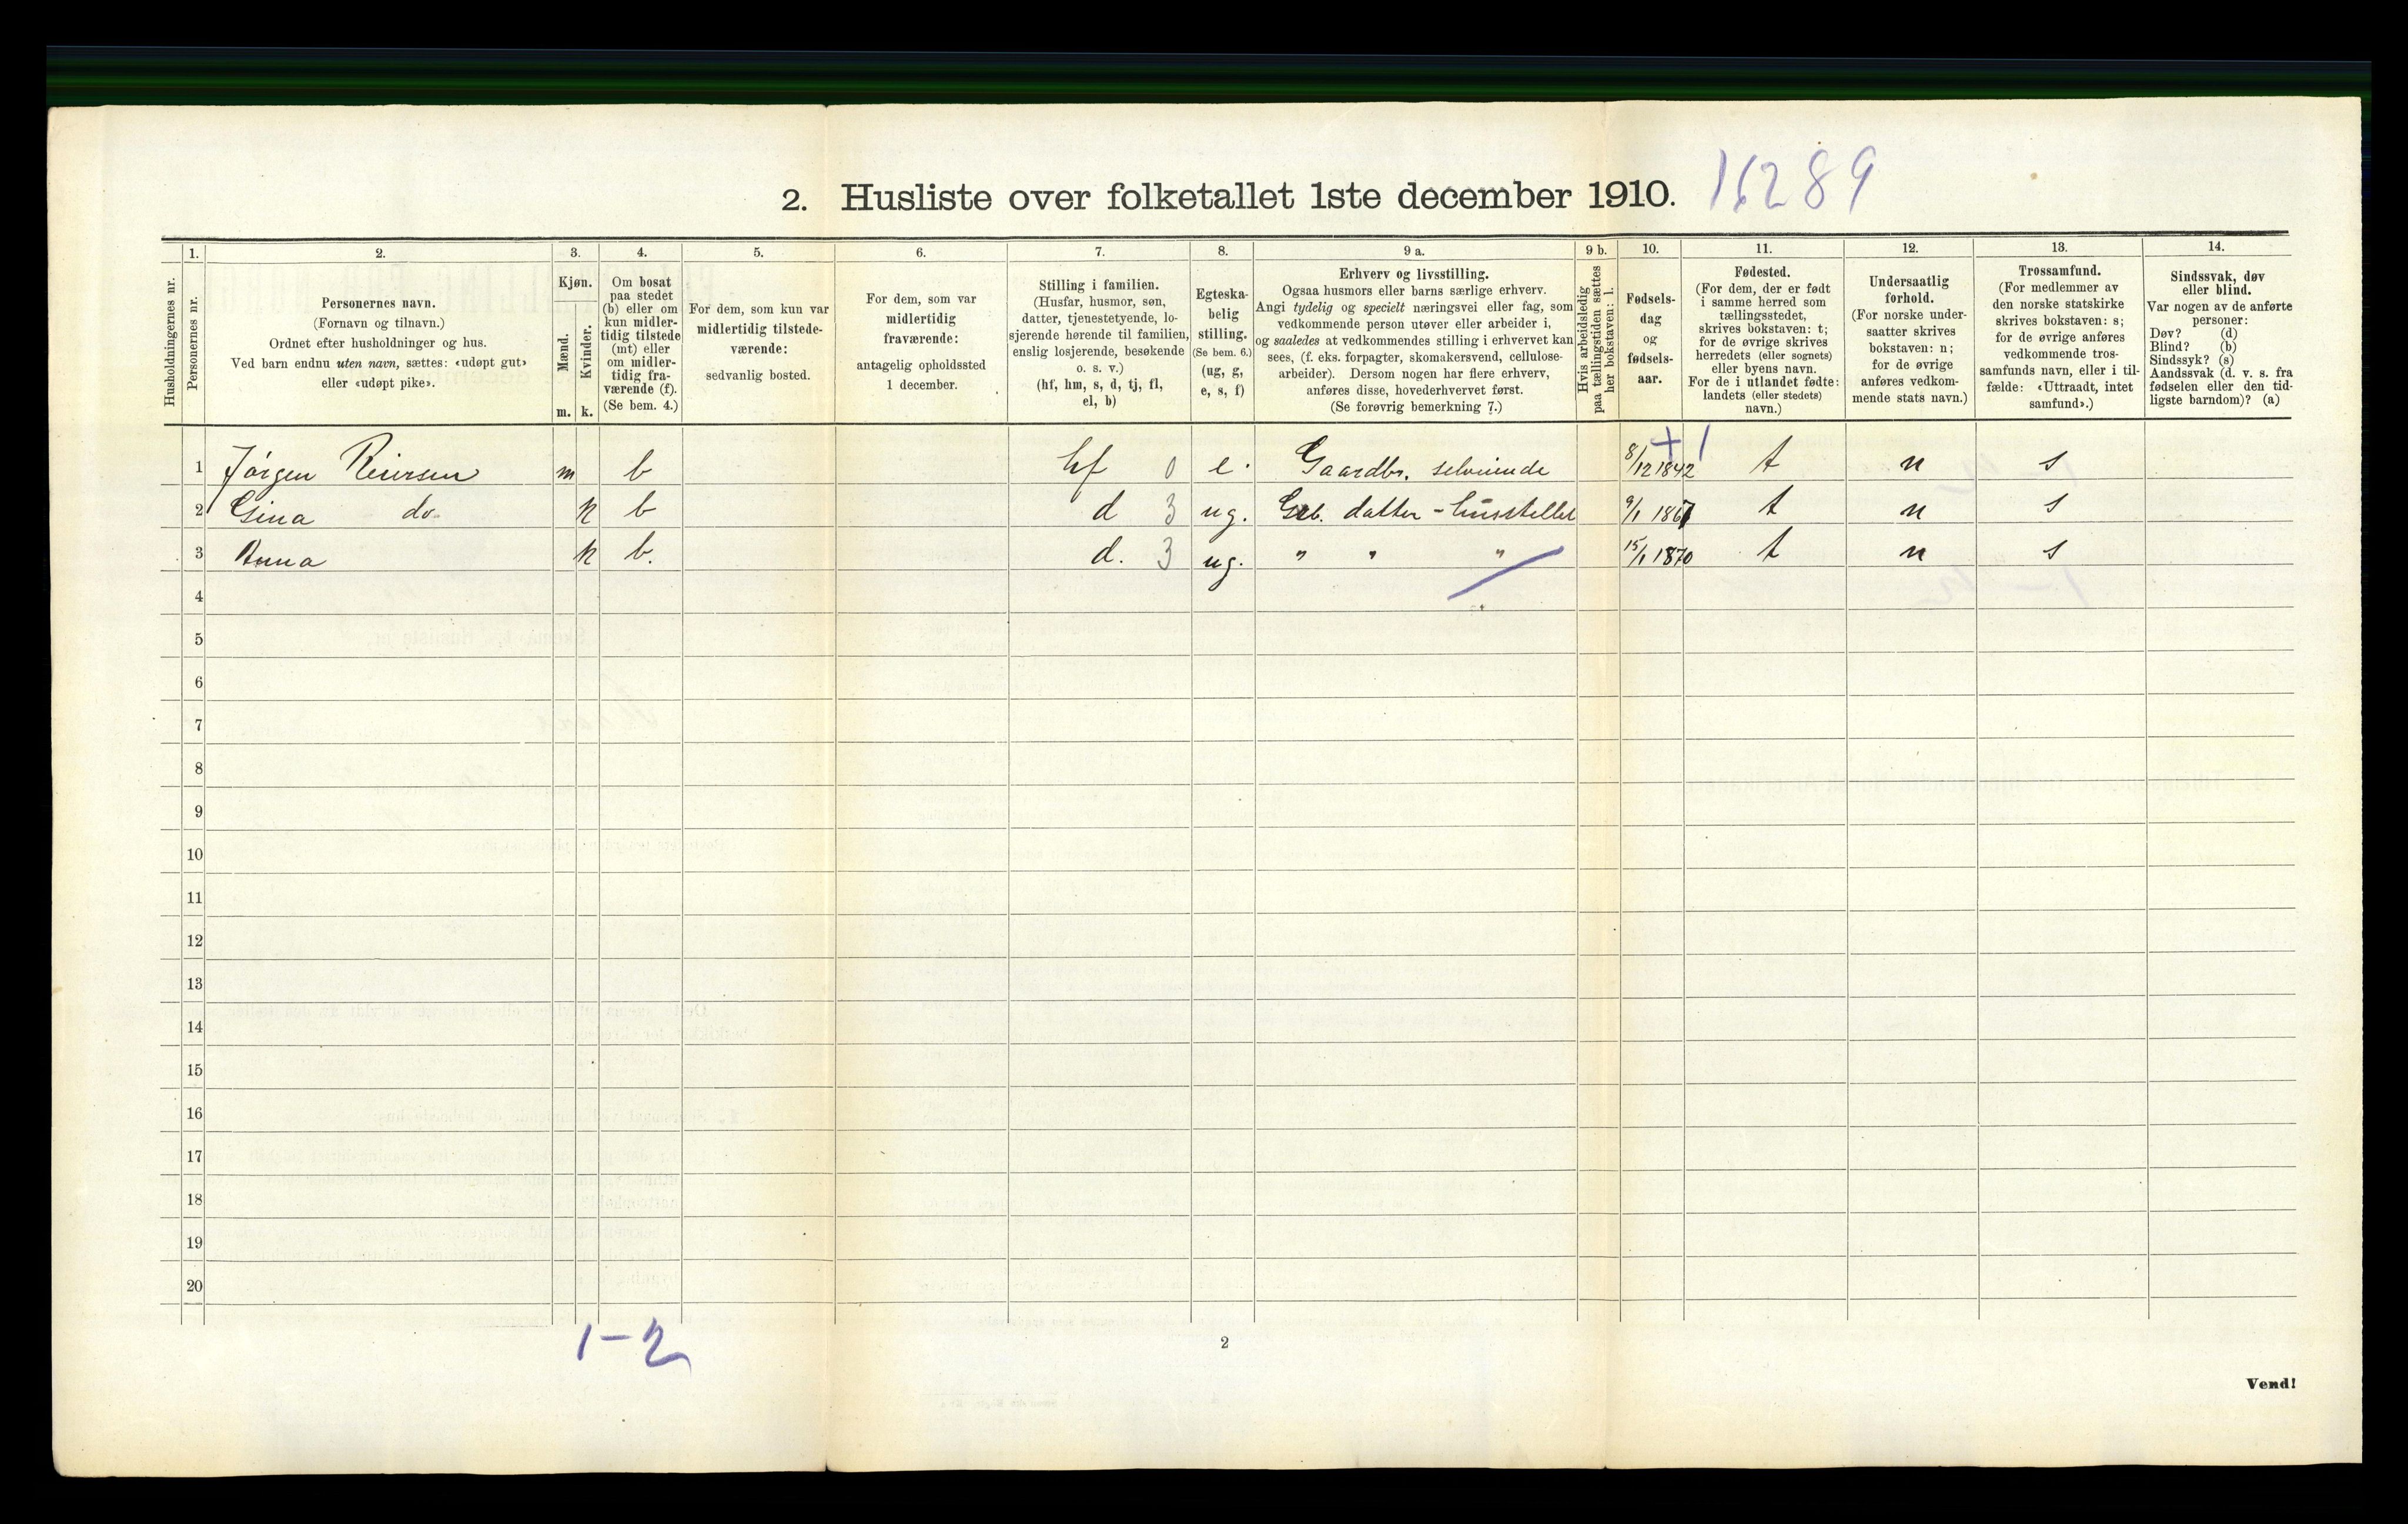 2. Husliste over folketallet 1ste december 1910. 16289
1. 2. 3. 4. 5. 6. 7. 8. 9 a. 9 b. 10. 11. 12. 13. 14.
Husholdningernes nr.
Personernes nr.
Personernes navn.
(Fornavn og tilnavn.)
Ordnet efter husholdninger og hus.
Ved barn endnu uten navn, sættes: «udøpt gut»
eller «udøpt pike».
Kjøn.
Mænd.
Kvinder.
m. k.
Om bosat
paa stedet
(b) eller om
kun midler-
tidig tilstede
(mt) eller
om midler-
tidig fra-
værende (f).
(Se bem. 4.)
For dem, som kun var
midlertidig tilstede-
værende:
sedvanlig bosted.
For dem, som var
midlertidig
fraværende:
antagelig opholdssted
1 december.
Stilling i familien.
(Husfar, husmor, søn,
datter, tjenestetyende, lo-
sjerende hørende til familien,
enslig losjerende, besøkende
o. s. v.)
(hf, hm, s, d, tj, fl,
el, b)
Egteska-
belig
stilling.
(Se bem. 6.)
(ug, g,
e, s, f)
Erhverv og livsstilling.
Ogsaa husmors eller barns særlige erhverv.
Angi tydelig og specielt næringsvei eller fag, som
vedkommende person utøver eller arbeider i,
og saaledes at vedkommendes stilling i erhvervet kan
sees, (f. eks. forpagter, skomakersvend, cellulose-
arbeider). Dersom nogen har flere erhverv,
anføres disse, hovederhvervet først.
(Se forøvrig bemerkning 7.)
Hvis arbeidsledig
paa tællingstiden sættes
her bokstaven: l.
Fødsels-
dag
og
fødsels-
aar.
Fødested.
(For dem, der er født
i samme herred som
tællingsstedet,
skrives bokstaven: t;
for de øvrige skrives
herredets (eller sognets)
eller byens navn.
For de i utlandet fødte:
landets (eller stedets)
navn.)
Undersaatlig
forhold.
(For norske under-
saatter skrives
bokstaven: n;
for de øvrige
anføres vedkom-
mende stats navn.)
Trossamfund.
(For medlemmer av
den norske statskirke
skrives bokstaven: s;
for de øvrige anføres
vedkommende tros-
samfunds navn, eller i til-
fælde: «Uttraadt, intet
samfund».)
Sindssvak, døv
eller blind.
Var nogen av de anførte
personer:
Døv? (d)
Blind? (b)
Sindssyk? (s)
Aandssvak (d. v. s. fra
fødselen eller den tid-
ligste barndom)? (a)
+ 1
1 Jörgen Reiersen m b hf 0 e. Gaardbr. selveiende 8/12 1842 t n s
2 Gina do k b d 3 ug. datter - husstellet 9/1 1867 t n s
3 Anna k b. d. 3 ug. " " " 15/1 1870 t n s
4
5
6
7
8
9
10
11
12
13
14
15
16
17
18
19
20
1-2
2
Vend!